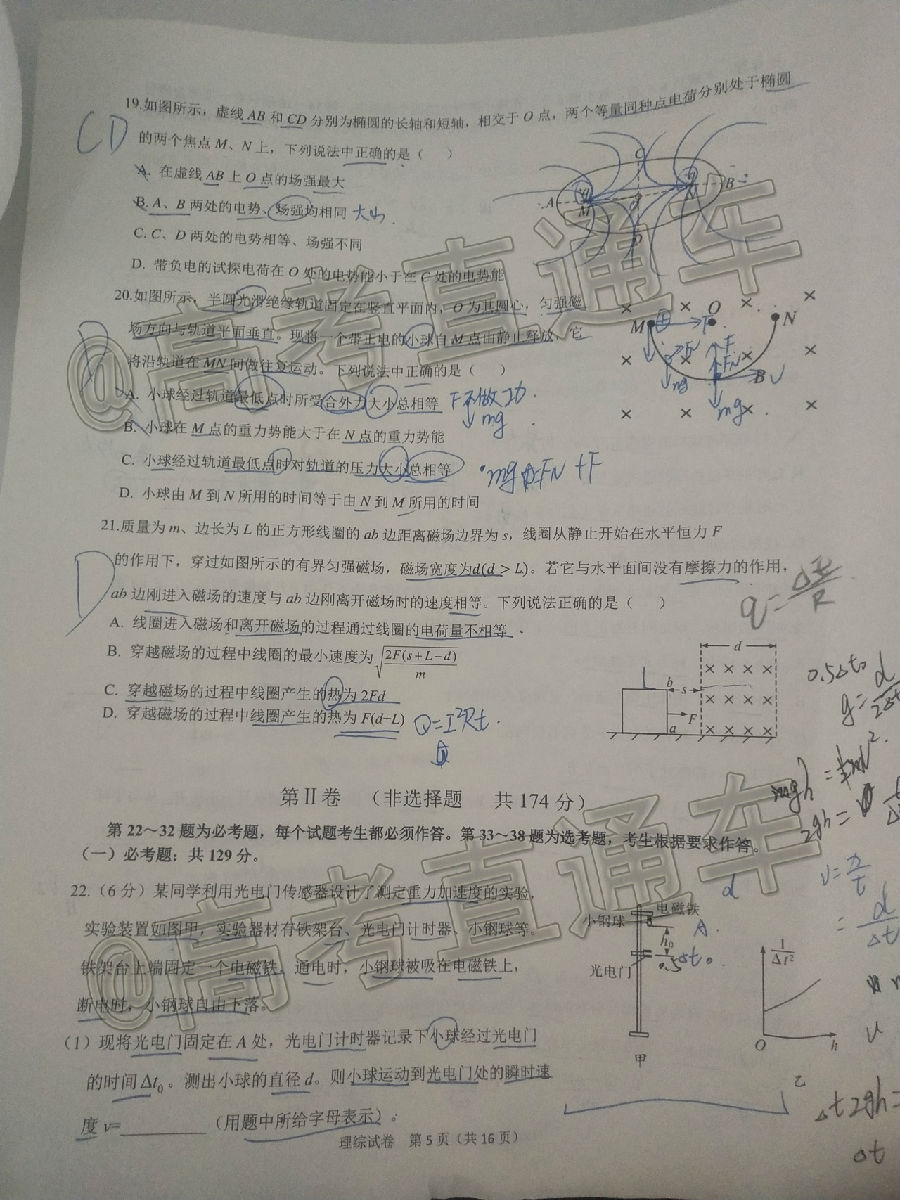 19.如图所示，虚线 AB 和 CD 分别为椭圆的长轴和短轴，相交于 O 点，两个等量同种点电荷分别处于椭圆
CD
的两个焦点 M、N 上，下列说法中正确的是（ ）
A. 在虚线 AB 上 O 点的场强最大
B. A、B 两处的电势、场强均相同 大小
C. C、D 两处的电势相等、场强不同
D. 带负电的试探电荷在 O 处的电势能小于在 C 处的电势能
A M C O D N B
20.如图所示，半圆光滑绝缘轨道固定在竖直平面内，O 为其圆心，匀强磁
场方向与轨道平面垂直。现将一个带正电的小球自 M 点由静止释放，它
D
将沿轨道在 MN 间做往复运动。下列说法中正确的是（ ）
A. 小球经过轨道最低点时所受合外力大小总相等 F不做功
mg
B. 小球在 M 点的重力势能大于在 N 点的重力势能
C. 小球经过轨道最低点时对轨道的压力大小总相等 mg FN + F
D. 小球由 M 到 N 所用的时间等于由 N 到 M 所用的时间
M O N
F FN B mg
21.质量为 m、边长为 L 的正方形线圈的 ab 边距离磁场边界为 s，线圈从静止开始在水平恒力 F
的作用下，穿过如图所示的有界匀强磁场，磁场宽度为d(d > L)。若它与水平面间没有摩擦力的作用，
D
ab 边刚进入磁场的速度与 ab 边刚离开磁场时的速度相等。下列说法正确的是（ ）
A. 线圈进入磁场和离开磁场的过程通过线圈的电荷量不相等
B. 穿越磁场的过程中线圈的最小速度为√(2F(s+L−d)/m)
C. 穿越磁场的过程中线圈产生的热为 2Fd
D. 穿越磁场的过程中线圈产生的热为 F(d−L) Q=I²Rt
b s F a d
第Ⅱ卷 （非选择题 共 174 分）
第 22～32 题为必考题，每个试题考生都必须作答。第 33～38 题为选考题，考生根据要求作答。
（一）必考题：共 129 分。
22.（6 分）某同学利用光电门传感器设计了测定重力加速度的实验，
实验装置如图甲，实验器材有铁架台、光电门计时器、小钢球等，
铁架台上端固定一个电磁铁，通电时，小钢球被吸在电磁铁上，
断电时，小钢球自由下落。
(1）现将光电门固定在 A 处，光电门计时器记录下小球经过光电门
的时间 Δt₀。测出小球的直径 d。则小球运动到光电门处的瞬时速
度 v=________（用题中所给字母表示）；
小钢球 电磁铁
A
h₀
光电门
甲
1/Δt²
O h
乙
理综试卷 第 5 页（共 16 页）
@高考直通车
@高考直通车